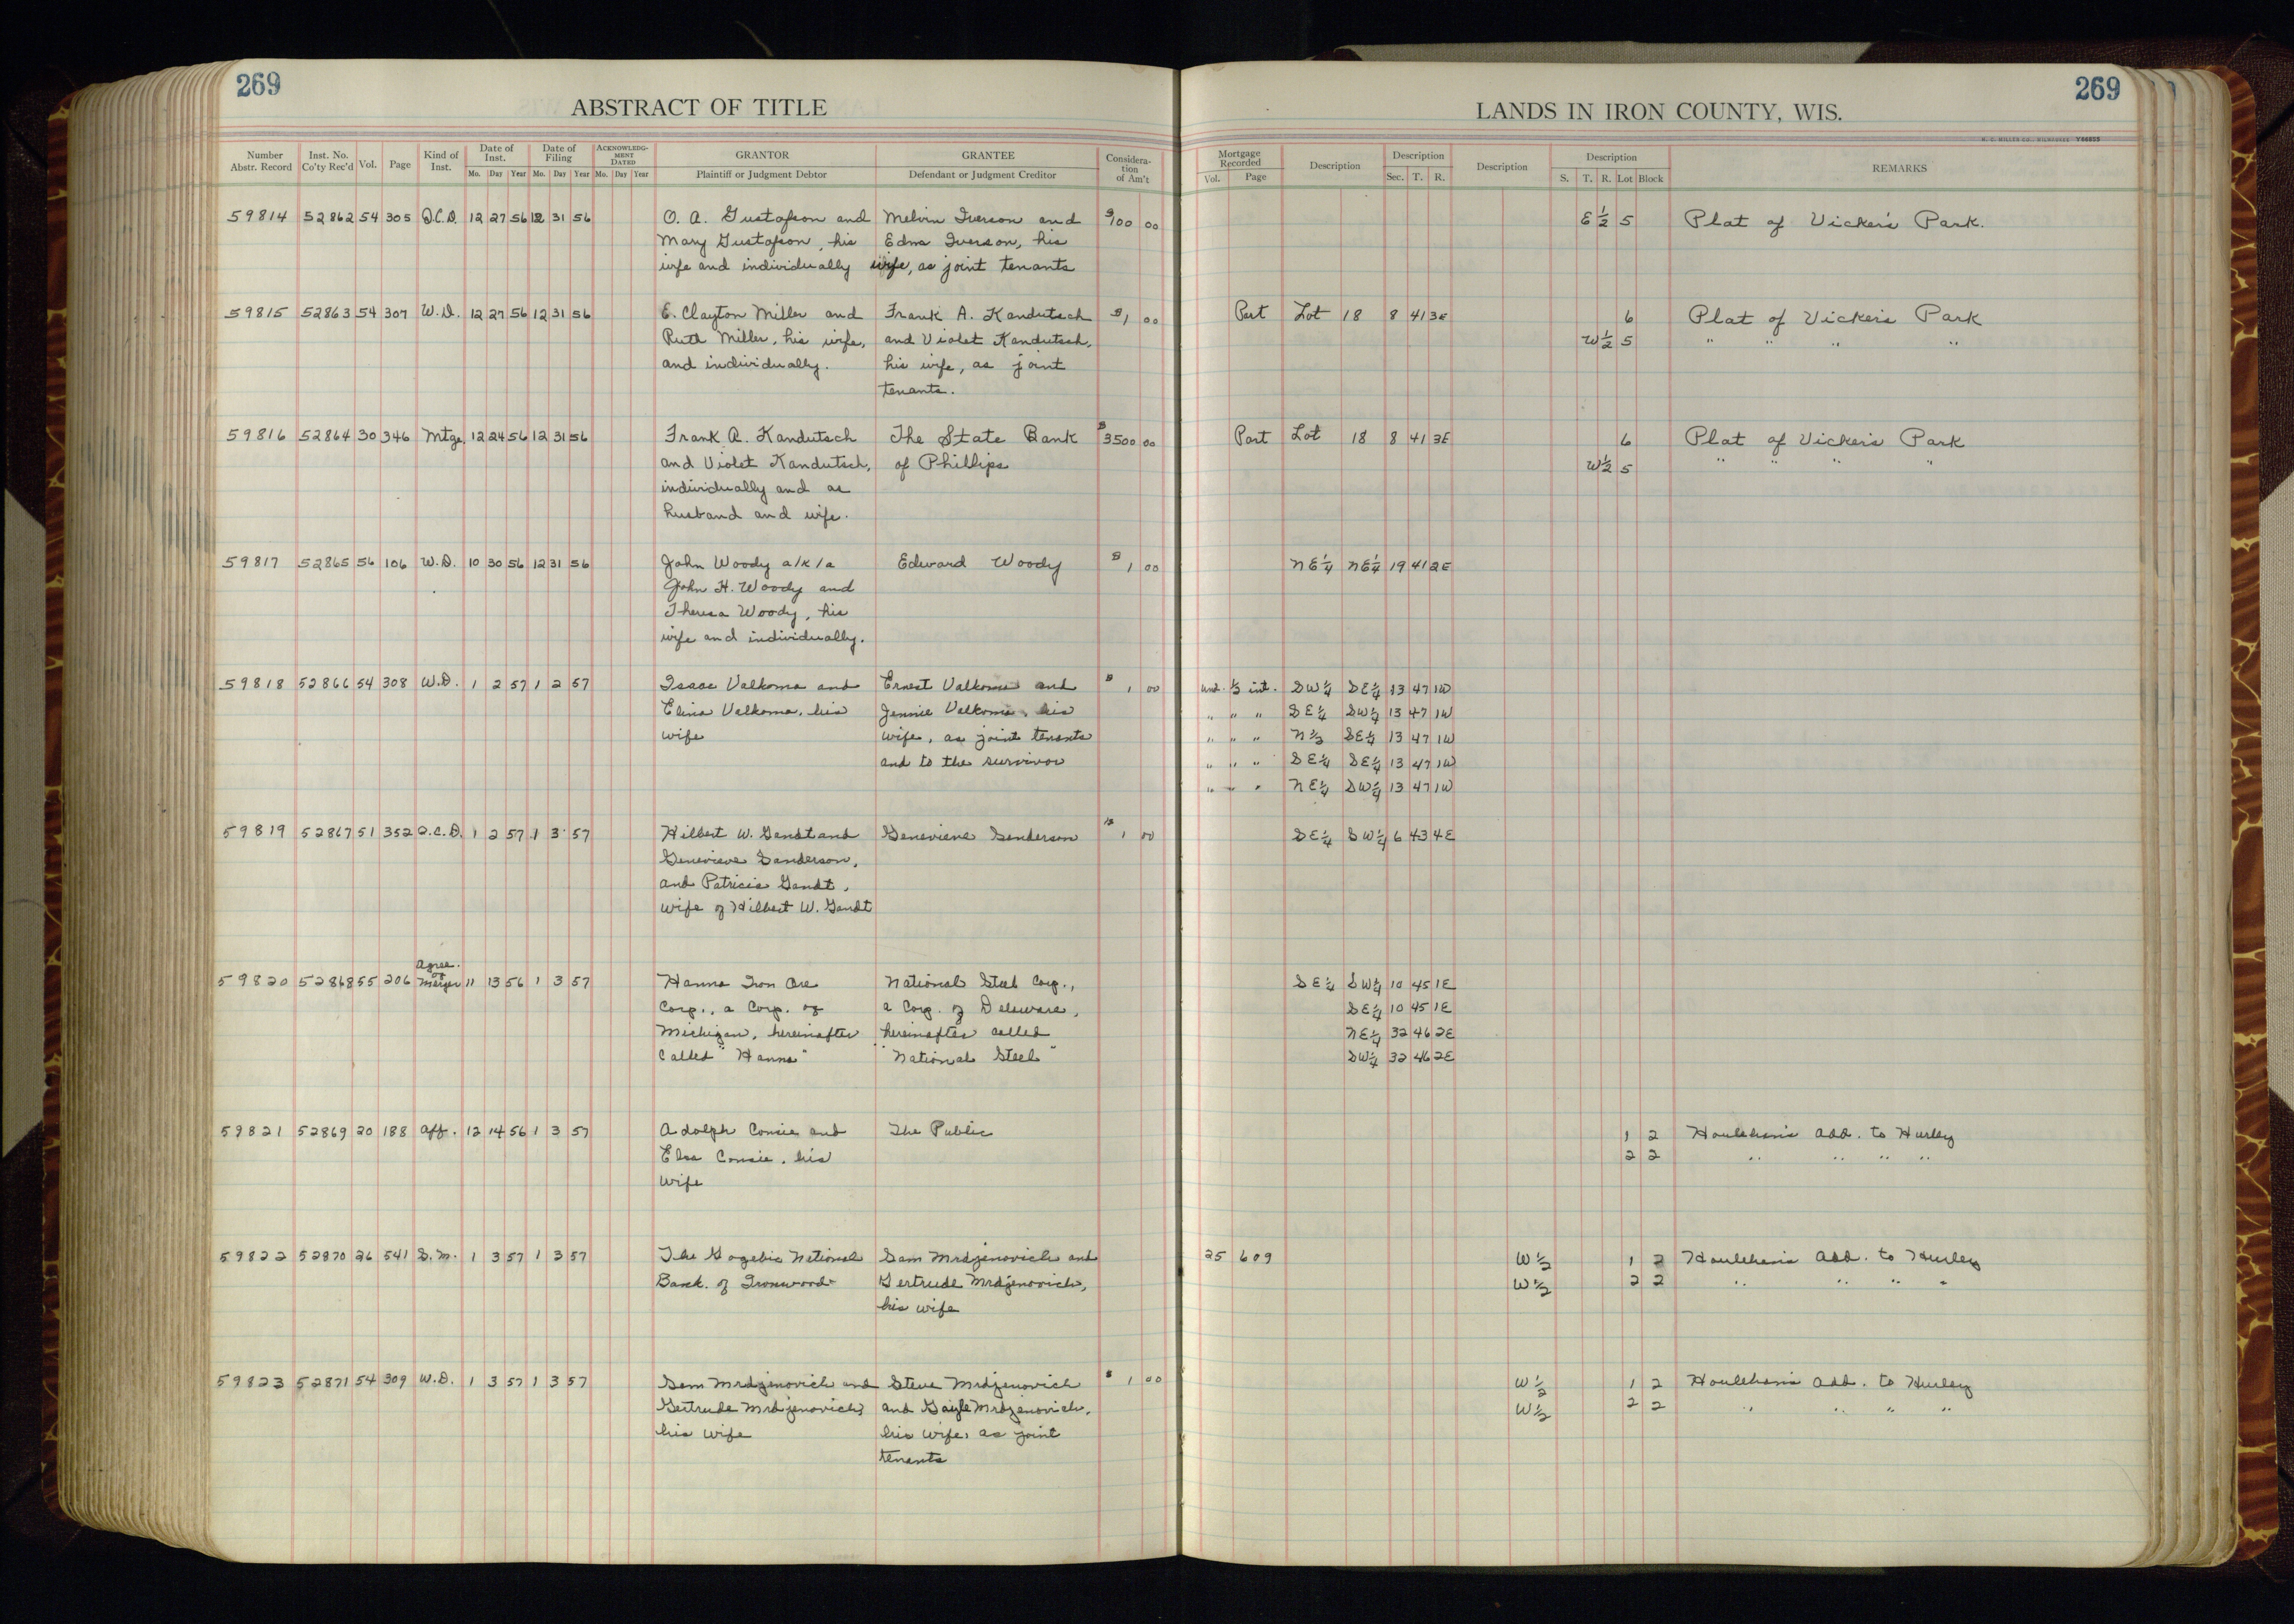 269
ABSTRACT OF TITLE
Number Abstr. Record Inst. No. Co'ty Rec'd Vol. Page Kind of Inst. Date of Inst. Mo. Day Year Date of Filing Mo. Day Year ACKNOWLEDG-MENT DATED Mo. Day Year GRANTOR Plaintiff or Judgment Debtor GRANTEE Defendant or Judgment Creditor Considera-tion of Am't
59814 52862 54 305 Q.C.D. 12 27 56 12 31 56 O. A. Gustafson and Melvin Iverson and $100 00
Mary Gustafson, his Edna Iverson, his
wife and individually wife, as joint tenants
59815 52863 54 307 W.D. 12 27 56 12 31 56 E. Clayton Miller and Frank A. Kandutsch $1 00
Ruth Miller, his wife, and Violet Kandutsch,
and individually. his wife, as joint
tenants.
59816 52864 30 346 Mtge. 12 24 56 12 31 56 Frank A. Kandutsch The State Bank $3500 00
and Violet Kandutsch, of Phillips
individually and as
husband and wife.
59817 52865 56 106 W.D. 10 30 56 12 31 56 John Woody a/k/a Edward Woody $1 00
John H. Woody and
Theresa Woody, his
wife and individually.
59818 52866 54 308 W.D. 1 2 57 1 2 57 Isaac Valkoma and Ernest Valkoma and $1 00
Elina Valkoma, his Jennie Valkoma, his
wife wife, as joint tenants
and to the survivor
59819 52867 51 352 Q.C.D. 1 2 57 1 3 57 Hilbert W. Gandt and Genevieve Sanderson $1 00
Genevieve Sanderson,
and Patricia Gandt,
wife of Hilbert W. Gandt
59820 52868 55 206 Agree. of Merger 11 13 56 1 3 57 Hanna Iron Ore National Steel Corp.,
Corp., a Corp. of a Corp. of Delaware,
Michigan, hereinafter hereinafter called
called "Hanna" "National Steel"
59821 52869 20 188 Aff. 12 14 56 1 3 57 Adolph Consie and The Public
Elsa Consie, his
wife
59822 52870 26 541 S.M. 1 3 57 1 3 57 The Gogebic National Sam Mrdjenovich and
Bank of Ironwood Gertrude Mrdjenovich,
his wife
59823 52871 54 309 W.D. 1 3 57 1 3 57 Sam Mrdjenovich and Steve Mrdjenovich $1 00
Gertrude Mrdjenovich, and Gayle Mrdjenovich,
his wife his wife, as joint
tenants
269
LANDS IN IRON COUNTY, WIS.
Mortgage Recorded Vol. Page Description Description Sec. T. R. Description Description S. T. R. Lot Block REMARKS
E 1/2 5 Plat of Vicker's Park.
Part Lot 18 8 41 3E 6 Plat of Vicker's Park
W 1/2 5 " " " "
Part Lot 18 8 41 3E 6 Plat of Vicker's Park
W 1/2 5 " " " "
NE 1/4 NE 1/4 19 41 2E
und. 1/2 int. SW 1/4 SE 1/4 13 47 1W
" " " SE 1/4 SW 1/4 13 47 1W
" " " N 1/2 SE 1/4 13 47 1W
" " " SE 1/4 SE 1/4 13 47 1W
" " " NE 1/4 SW 1/4 13 47 1W
SE 1/4 SW 1/4 6 43 4E
SE 1/4 SW 1/4 10 45 1E
SE 1/4 10 45 1E
NE 1/4 32 46 2E
SW 1/4 32 46 2E
1 2 Houlehan's Add. to Hurley
2 2 " " " "
25 609 W 1/2 1 2 Houlehan's Add. to Hurley
W 1/2 2 2 " " " "
W 1/2 1 2 Houlehan's Add. to Hurley
W 1/2 2 2 " " " "